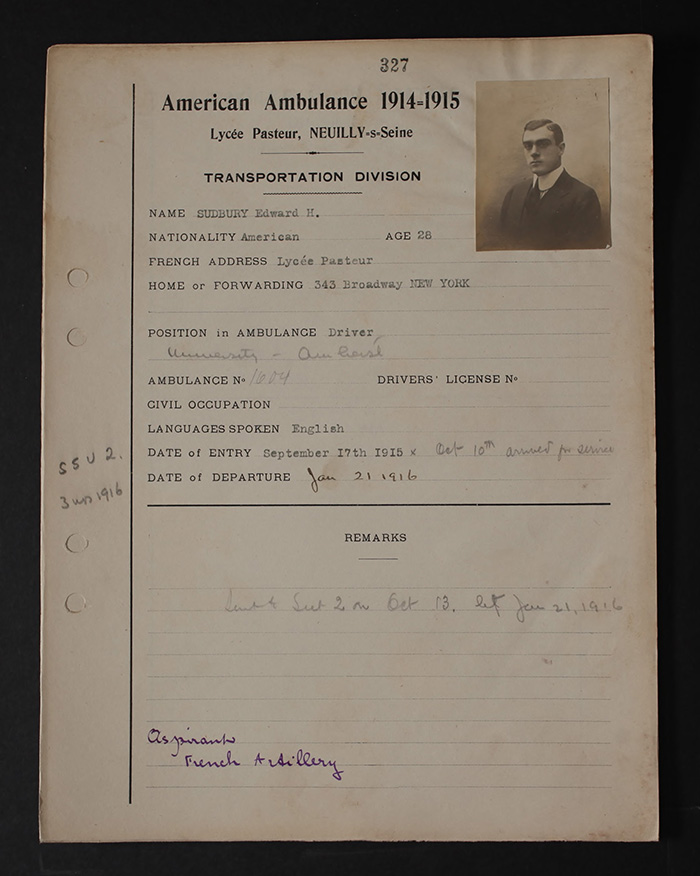 327
American Ambulance 1914=1915
Lycée Pasteur, NEUILLY-s-Seine
TRANSPORTATION DIVISION
NAME SUDBURY Edward H.
NATIONALITY American AGE 28
FRENCH ADDRESS Lycée Pasteur
HOME or FORWARDING 343 Broadway NEW YORK
POSITION in AMBULANCE Driver
University - Amherst
AMBULANCE No 1604 DRIVERS' LICENSE No
CIVIL OCCUPATION
LANGUAGES SPOKEN English
DATE of ENTRY September 17th 1915 x Oct 10th arrived for service
DATE of DEPARTURE Jan 21 1916
SSU 2.
3 1916
REMARKS
Sent to Sect 2 on Oct 13. left Jan 21, 1916
Aspirant
French Artillery